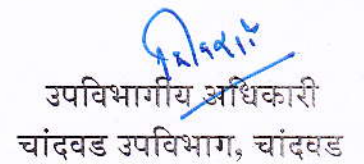 उपविभागीय अधिकारी
चांदवड उपविभाग, चांदवड